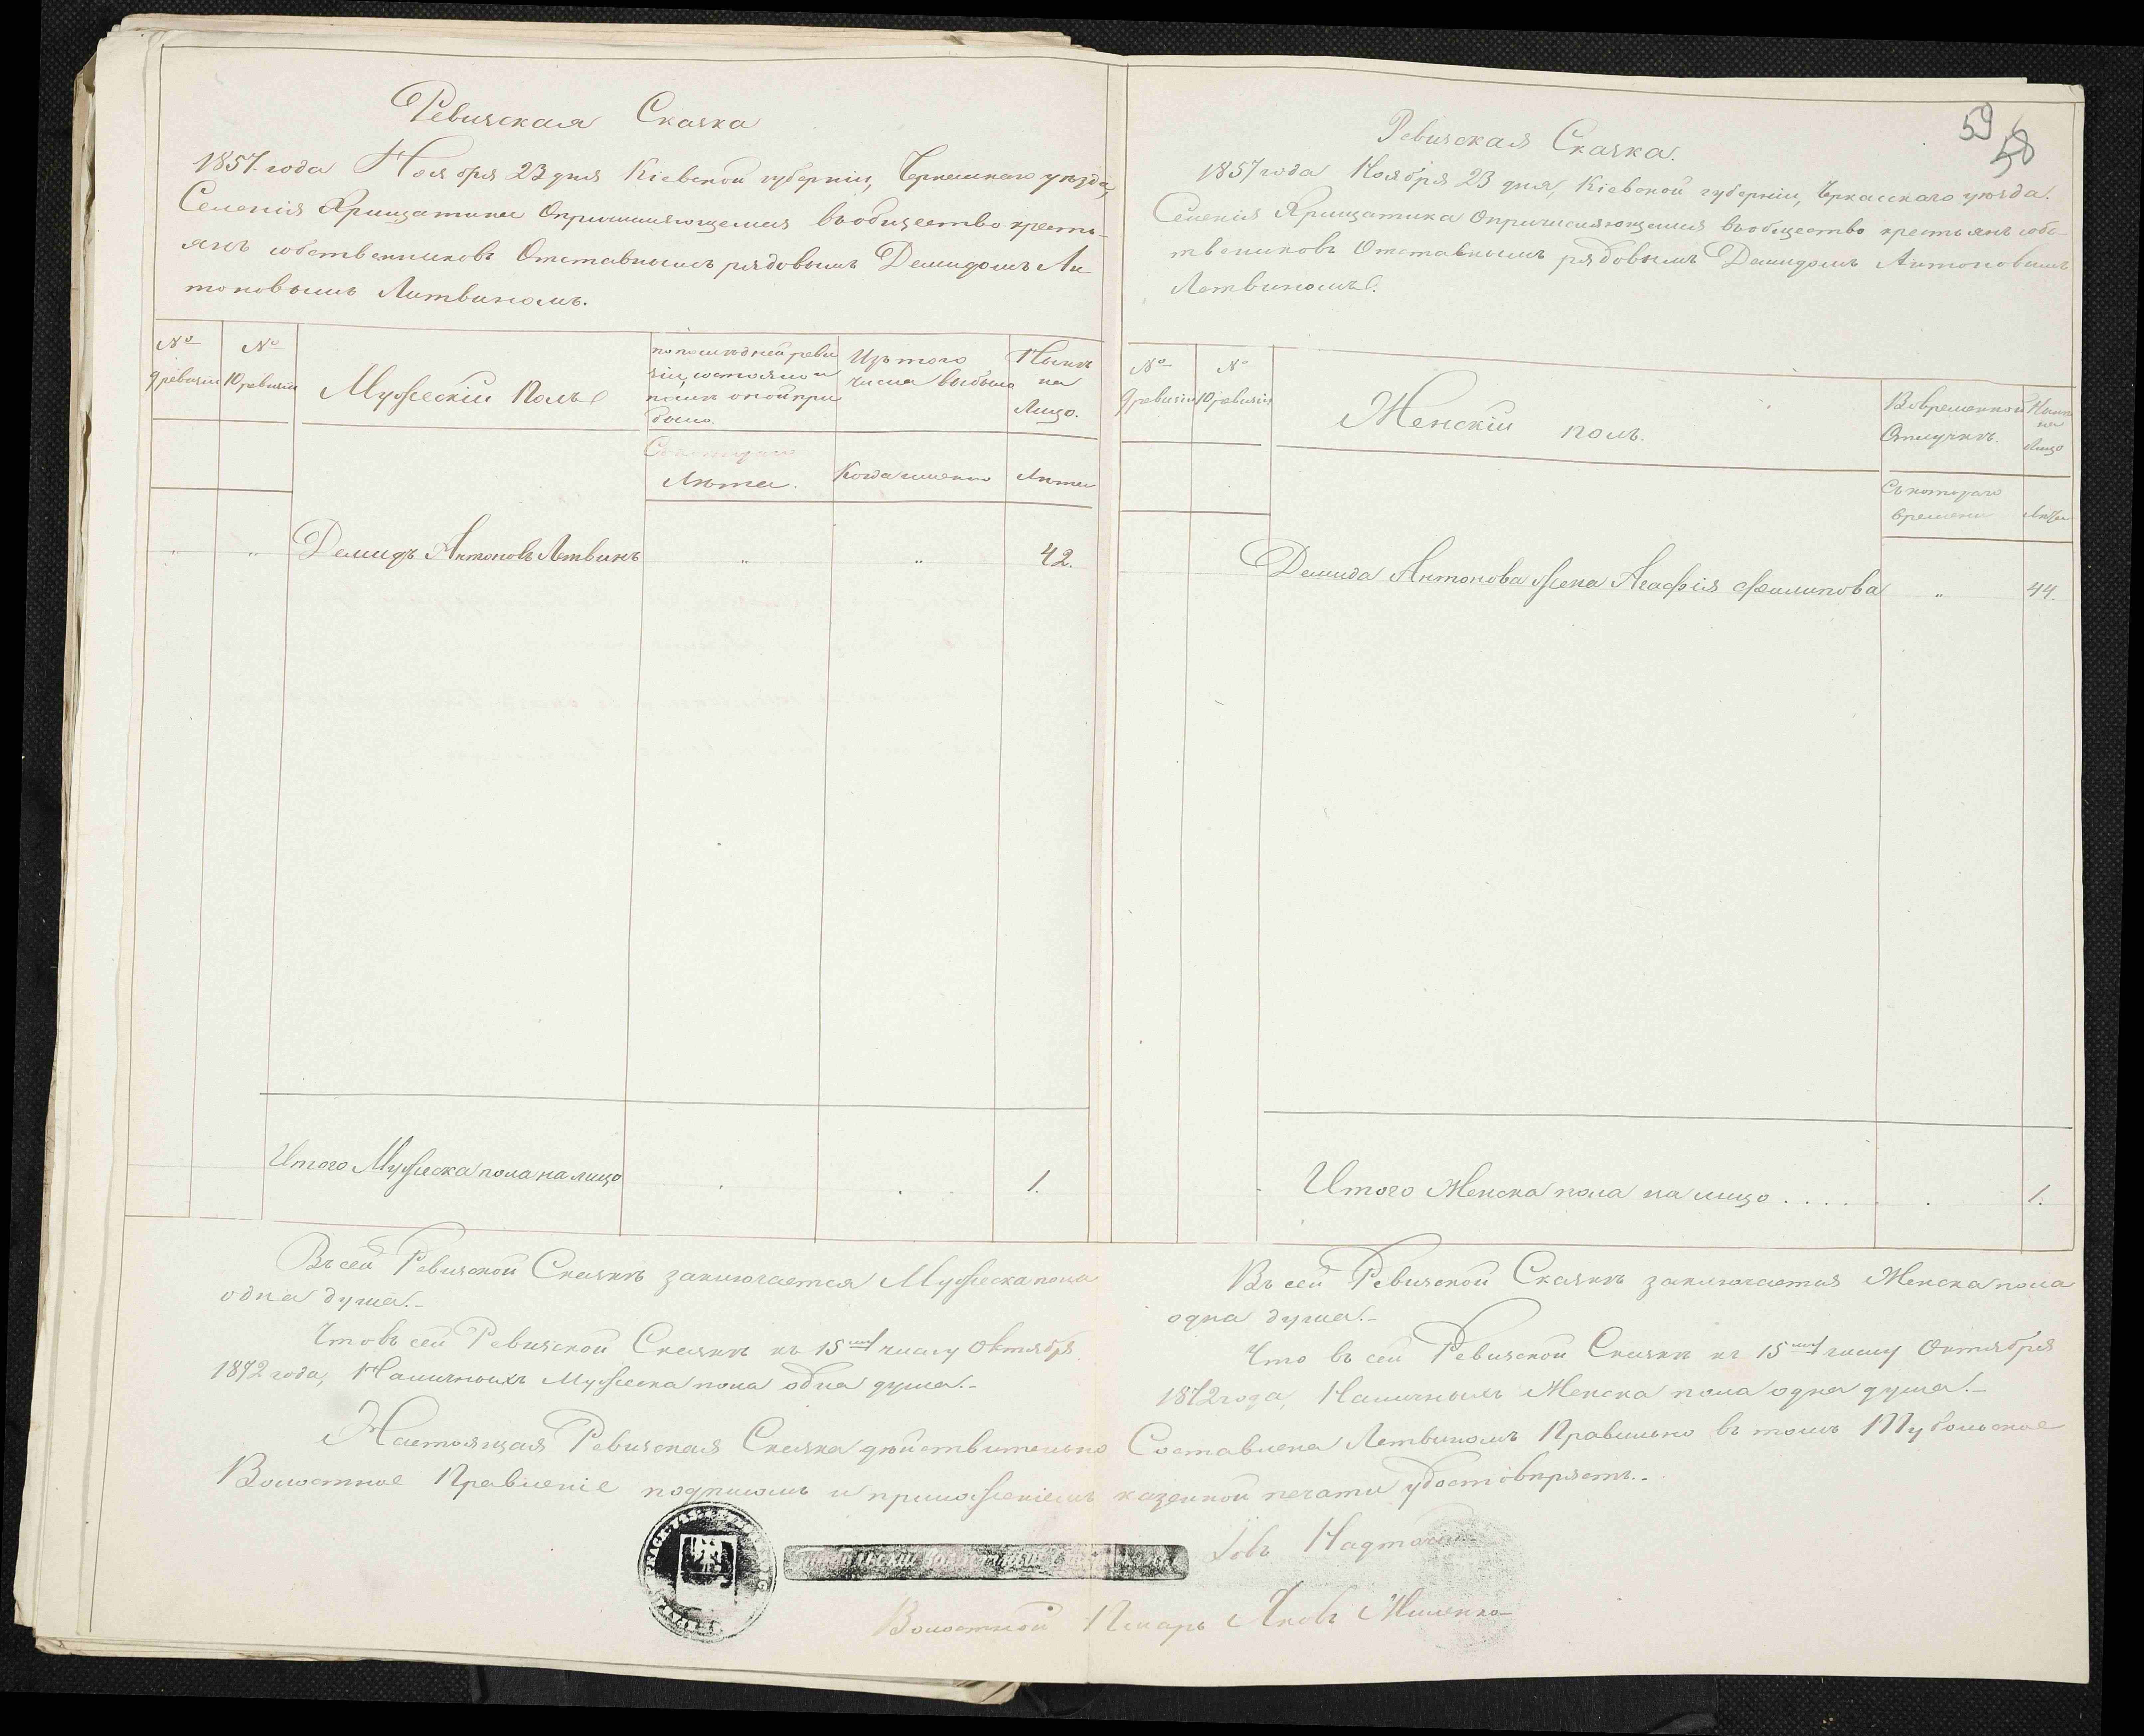 Ревизская Сказка
1857 года Ноября 23 дня Кіевской губерніи, Черкаскаго уезда,
Селенія Хрищатика О причисляющемся въ общество кресть-
янъ собственниковъ Отставнымъ рядовымъ Демидомъ Ан
тоновымъ Литвиномъ.
№ 9 ревизіи
№ 10 ревизіи
Мужескій Полъ
по последней реви
зіи состояло и
после оной при
было.
Изъ того
числа выбыло
Ныне
на
Лицо.
Съ котораго
Лета.
Когда именно
Лета
" " Демидъ Антоновъ Летвинъ " " 42.
Итого Мужеска пола на лицо . . 1.
Въ сей Ревизской Сказке заключается Мужеска пола
одна душа.-
Что въ сей Ревизской Сказке къ 15му числу Октября
1872 года, Наличныхъ Мужеска пола одна душа.-
59
58
Ревизская Сказка.
1857 года Ноября 23 дня, Кіевской губерніи, Черкаскаго уезда.
Селенія Хрищатика О причисляющемся въ общество крестьянъ собс-
твениковъ Отставнымъ рядовымъ Демидомъ Антоновымъ
Летвиномъ.
№ 9 ревизіи
№ 10 ревизіи
Женскій полъ.
Во временной
Отлучке.
Ныне
на
Лицо
Съ котораго
времени
Лета
Демида Антонова жена Агафія Филипова " 44.
Итого Женска пола на лицо . . . . . . 1.
Въ сей Ревизской Сказке заключается Женска пола
одна душа.-
Что въ сей Ревизской Сказке къ 15му числу Октября
1872 года, Наличныхъ Женска пола одна душа.-
Настоящая Ревизская Сказка действительно Составлена Летвиномъ Правильно въ томъ Мубольское
Волостное Правленіе подписомъ и приложеніемъ казенной печати удостоверяетъ.-
Іовъ
Волостной Писарь Яковъ Миленко